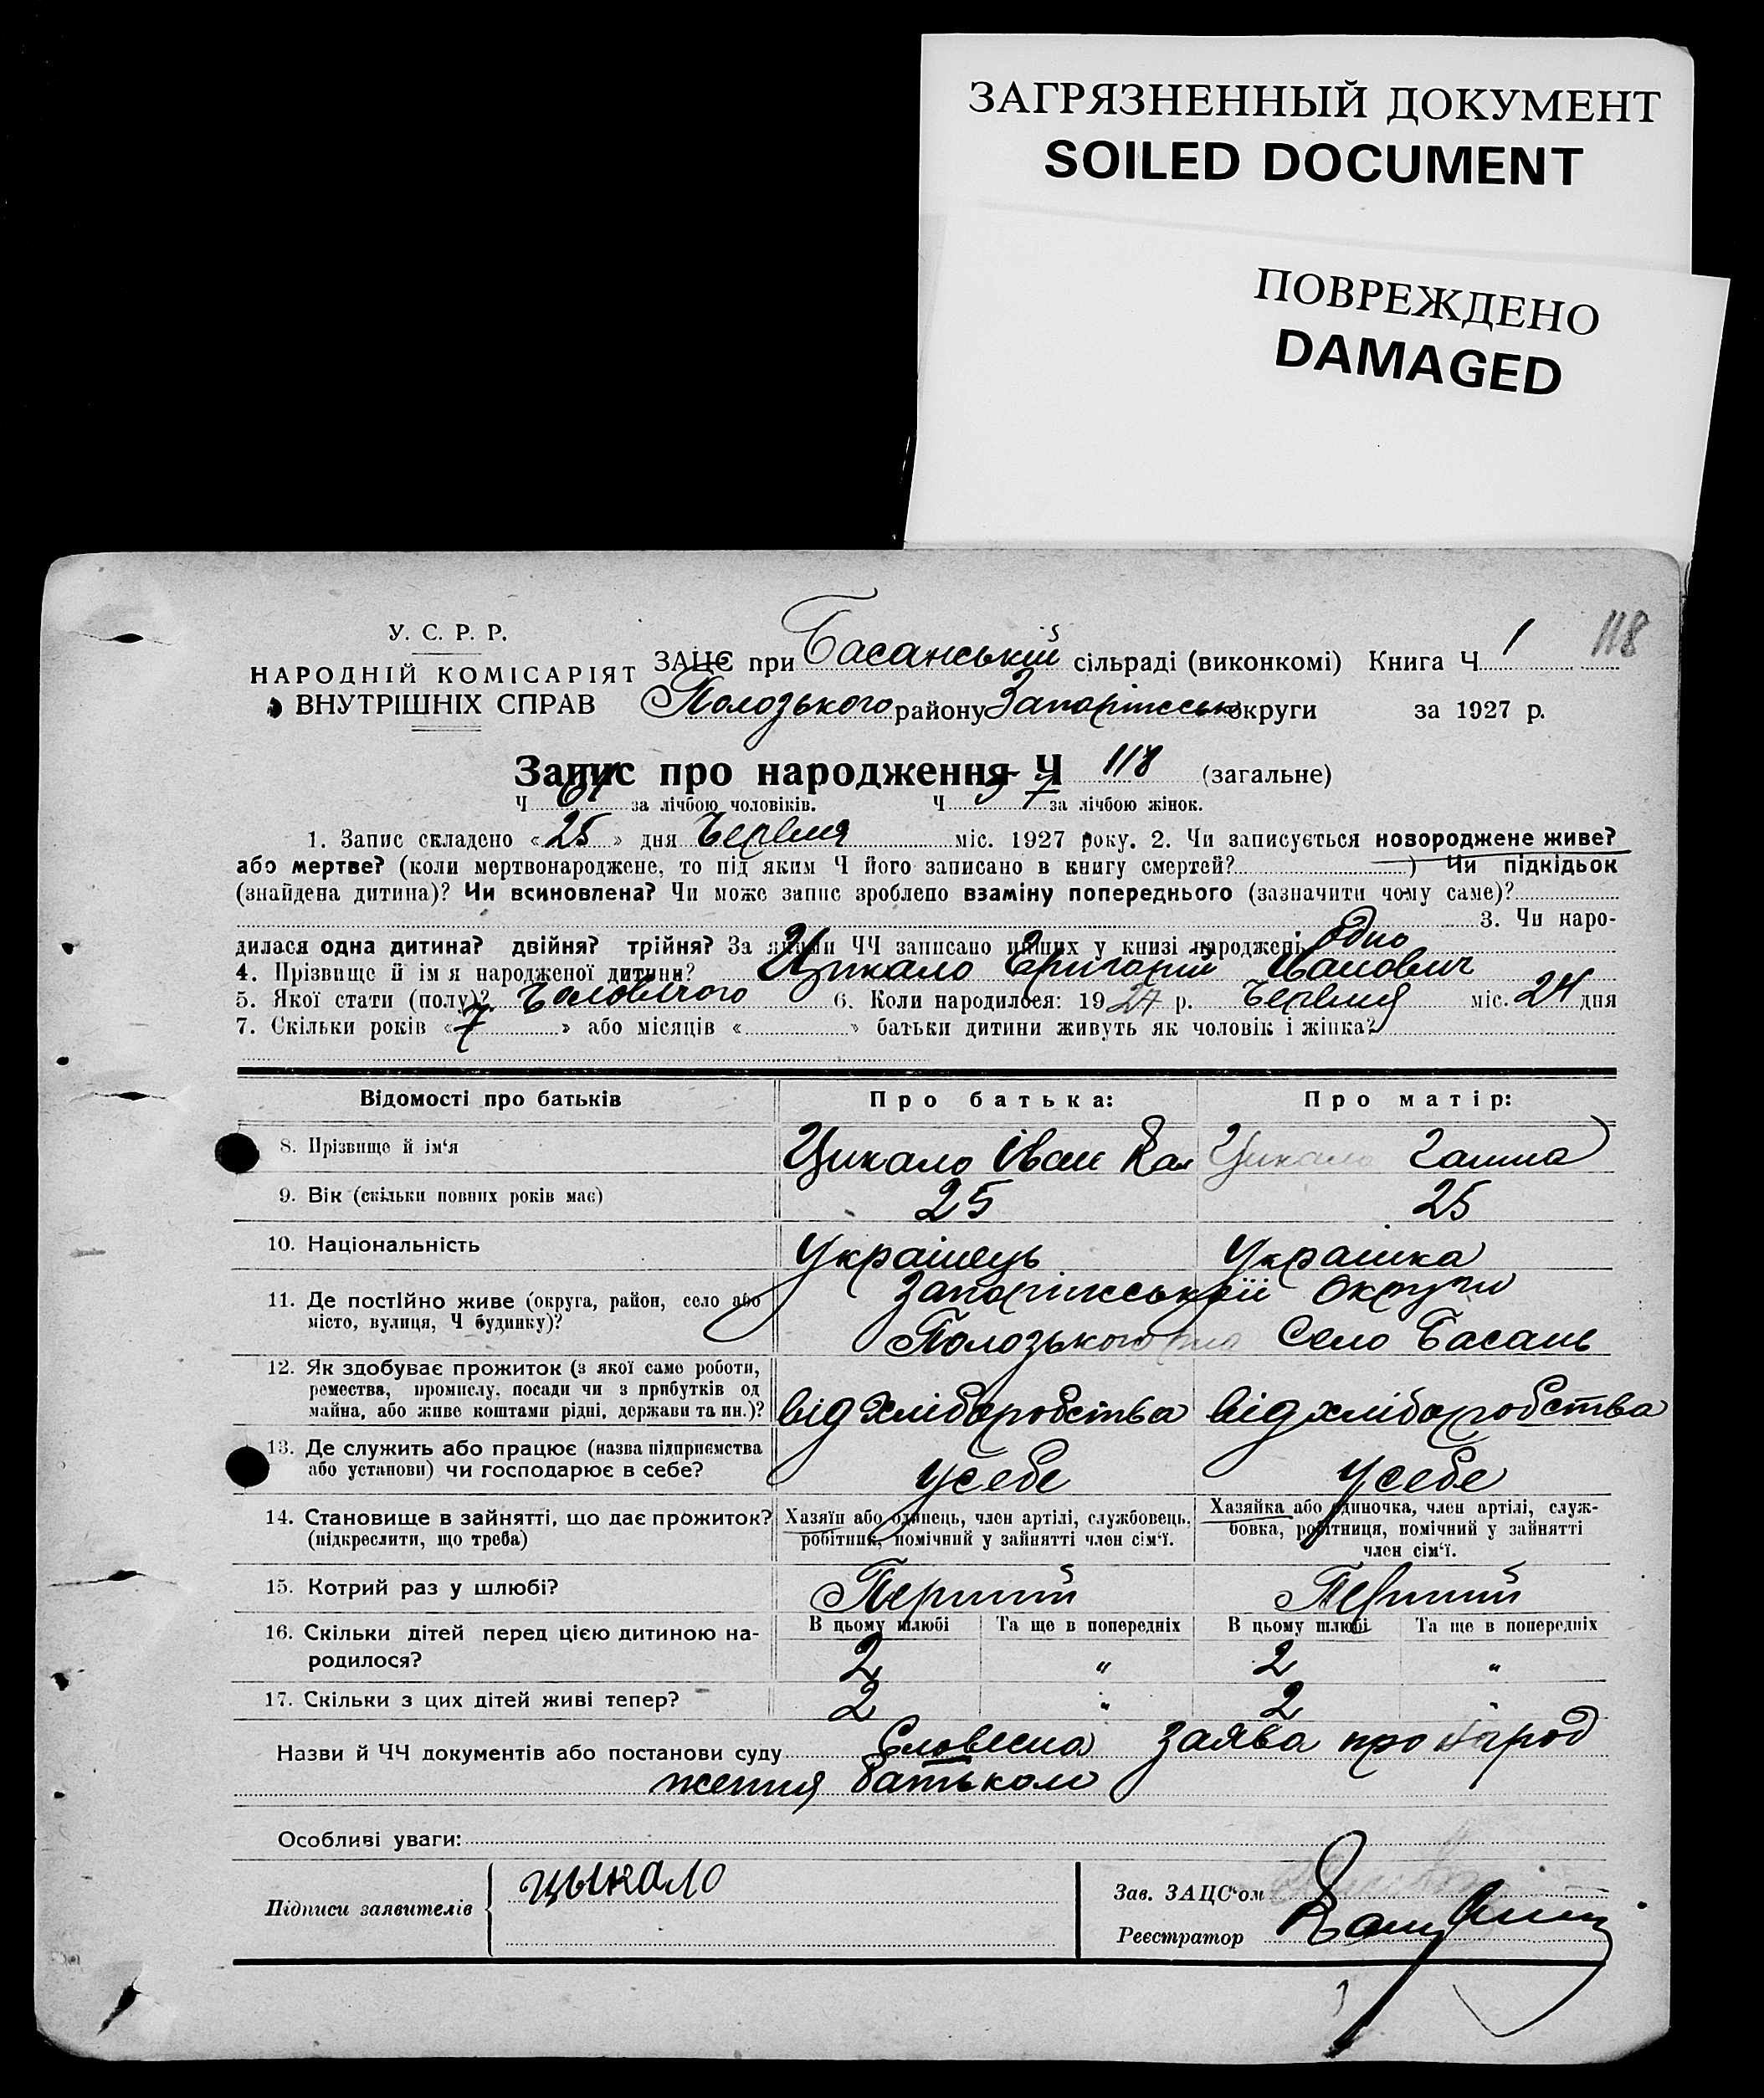 ЗАГРЯЗНЕННЫЙ ДОКУМЕНТ
SOILED DOCUMENT
ПОВРЕЖДЕНО
DAMAGED
118
У. С. Р. Р.
НАРОДНІЙ КОМІСАРІЯТ
ВНУТРІШНІХ СПРАВ
ЗАЦС при Басанській сільраді (виконкомі) Книга Ч 1
Полозького району Запоріжськ округи за 1927 р.
Запис про народження Ч 118 (загальне)
Ч 61 за лічбою чоловіків. Ч 57 за лічбою жінок.
1. Запис складено «25» дня Червня міс. 1927 року. 2. Чи записується новороджене живе?
або мертве? (коли мертвонароджене, то під яким Ч його записано в книгу смертей? ) Чи підкідьок
(знайдена дитина)? Чи всиновлена? Чи може запис зроблено взаміну попереднього (зазначити чому саме)?
3. Чи наро-
дилася одна дитина? двійня? трійня? За якими ЧЧ записано інших у книзі народжень Одно
4. Прізвище й ім я народженої дитини? Цикало Григорій Іванович
5. Якої стати (полу)? Чоловічого 6. Коли народилося: 1927 р. Червня міс. 24 дня
7. Скільки років «7» або місяців « » батьки дитини живуть як чоловік і жінка?
Відомості про батьків Про батька: Про матір:
8. Прізвище й ім'я Цикало Іван Цикало Ганна
9. Вік (скільки повних років має) 25 25
10. Національність Українець Українка
11. Де постійно живе (округа, район, село або Запоріжської округи
місто, вулиця, Ч будинку)? Полозького Село Басань
12. Як здобуває прожиток (з якої саме роботи,
ремества, промислу, посади чи з прибутків од
майна, або живе коштами рідні, держави та ин.)? від хліборобства від хліборобства
13. Де служить або працює (назва підприємства
або установи) чи господарює в себе? усебе усебе
14. Становище в зайнятті, що дає прожиток? Хазяїн або одинець, член артілі, службовець, Хазяйка або одиночка, член артілі, служ-
(підкреслити, що треба) робітник, помічний у зайнятті член сім'ї. бовка, робітниця, помічний у зайнятті
член сім'ї.
15. Котрий раз у шлюбі? Перший Перший
16. Скільки дітей перед цією дитиною на- В цьому шлюбі Та ще в попередніх В цьому шлюбі Та ще в попередніх
родилося? 2 " 2 "
17. Скільки з цих дітей живі тепер? 2 " 2 "
Назви й ЧЧ документів або постанови суду Словесна заява про народ
ження батьком
Особливі уваги:
Підписи заявителів цыкало
Зав. ЗАЦС'ом
Реєстратор